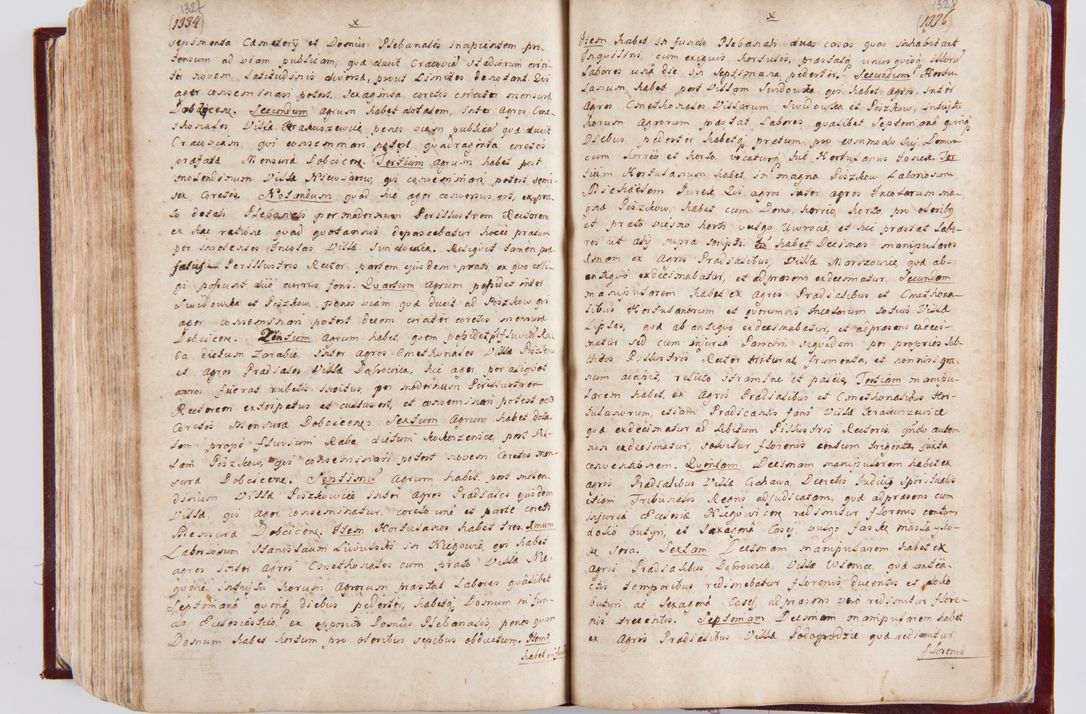 1334
x
sepimenta Caemeterij et Domus Plebanalis incipientem pro-
tensum ad viam publicam, qua ducit Cracoviā
novem, Latitudinis diversa, prout Limites denotant. Qui
ager conseminari potest, sexaginta coretis mensura
Dobscicen. Secundum agrum habet dotalem, inter Agros Cme-
thonales, Villæ Krakuszowice penes viam publicā qua ducit
Cracoviam, qui conseminari potest quadraginta coretos
præfata Mensura Dobcicen. Tertium agrum habet post
molendinum Villæ qui conseminari potest
sex coretis. Notandum quod hic ager conversus est, ex pra-
to dotali Plebanali per modernum Perillustrem Rectorem
ex hac ratione quod quotannis depascebatur hocce pratum
per insolentes Incolas Villæ Svidovka. Reliquit tamen præ-
fatus Perillustris Rector partem ejusdem prati, ex quo colli-
gi possunt duo currus foni. Quartum agrum possidet inter
Svidowka et Piszkow, penes viam qua ducit ad Piszkow qui
ager conseminari potest decem coretis mensura
Dobcicen. Quintum agrum habet, quem possidet
ba, dictum Zarabie inter agros Cmethonales Villæ Piszkow
et Agros Prædiales Villæ Dąbrowica, hic ager, per aliquot
annos fuerat rubetis per modernum Perillustrem
Rectorem extirpatus et cultus est, et conseminari potest octo
Coretis Mensura Dobcicens. Sextum Agrum habet dota-
lem prope fluvium Raba, dictum Kukuzenica, post Vil-
lam Piszkow, qui conseminari potest novem Coretis men-
sura Dobcicen. Septimū Agrum habet post molen-
dinum Villæ Piszkowice inter Agros Prædiales ejusdem
Villæ, qui ager conseminatur, coreto uno et parte coreti
Mensura Dobcicen. Item Hortulanos habet tres. Primum
Laboriosum Stanislaum in Niegowić, qui habet
agros inter agros Cmethonales cum prato Villæ Nie-
gowić, intuitu horum Agrorum præstat Labores qualibet
Septimana quinq diebus pedester, habetq Domum in fun-
do Ecclesiastico, ex opposito Domus Plebanalis, penes quam
Domum habet hortum pro oleribus sepibus obductum. Item
habet in fundo

1336
x
Item habet in fundo Plebanali duas casas quas inhabitant
Inquilini, cum exiguis hortulis, præstatq unus quisq illorū
Labores una die in Septimana pedester. Secundum Hortu-
lanum habet post Villam Svidowka, qui habet agros inter
Agros Cmethonales Villarum Svidowka et Piszkow, intuitu
horum Agrorum præstat Labores qualibet Septimana quinq
Diebus pedester habetq pratum pro commodo suo, Domum
cum horreo et horto, vocatur hic Hortulanus Josek. Ter-
tium Hortulanum habet in magna Piszkow Laboriosum
Michaëlem Jurek. Qui agros inter agros Incolarum ma-
gna Piszkow, habet cum Domo, horreo, horto pro oleribq
et prato vicino horti vulgo Uwrocie, et hic præstat Labo-
res ut alij supra scripti. Habet Decimas manipulares
Primam ex Agris Prædialibus, Villæ Marszowic, quæ ab-
antiquo exdecimabatur, et ad præsens exdecimatur. Secundam
manipularem habet ex Agris Prædialibus et Cmethona-
libus Hortulanorum et quorumvis Incolarum totius Villæ
Liplas, quæ ab antiquo exdecimabatur, et ad præsens exdeci-
matur sed cum injuria Parochi siquidem per proprios sub-
ditos Perillustris Rector triturat frumenta, et nonnisi gra-
num accipit, relicto stramine et paleis. Tertiam manipu-
larem habet, ex Agris Prædialibus et Cmethonalibus Hor-
tulanorum, etiam Prædicantis fani Villæ Krakuszowice
quæ exdecimatur ad libitum Perillustris Rectoris, qndo autem
non exdecimatur, solvitur florenis centum triginta, juxta
conventionem. Quartam Decimam manipularem habet ex
agris Prædialibus Villæ Cichawa Decretis Judicij Spiritualis
etiam Tribunales Regni adjudicatam, quæ ad præsens cum
injuria Ecclesiæ Niegowicen. redimitur florenis centum
dolio butyri, et sexagena Casej vulgo faske masla, co-
pe sera. Sextam Decimam manipularem habet ex
Agris Prædialibus Dąbrowica, Villæ Wieniec, quæ antea-
ctis temporibus redimebatur florenis ducentis et dolio
butyri ac sexagena Casej ad præsens vero redimitur flore-
nis trecentis. Septimam Decimam manipularem habet
ex Agris Prædialibus Villæ Podegrodzie quæ redimitur
florenis